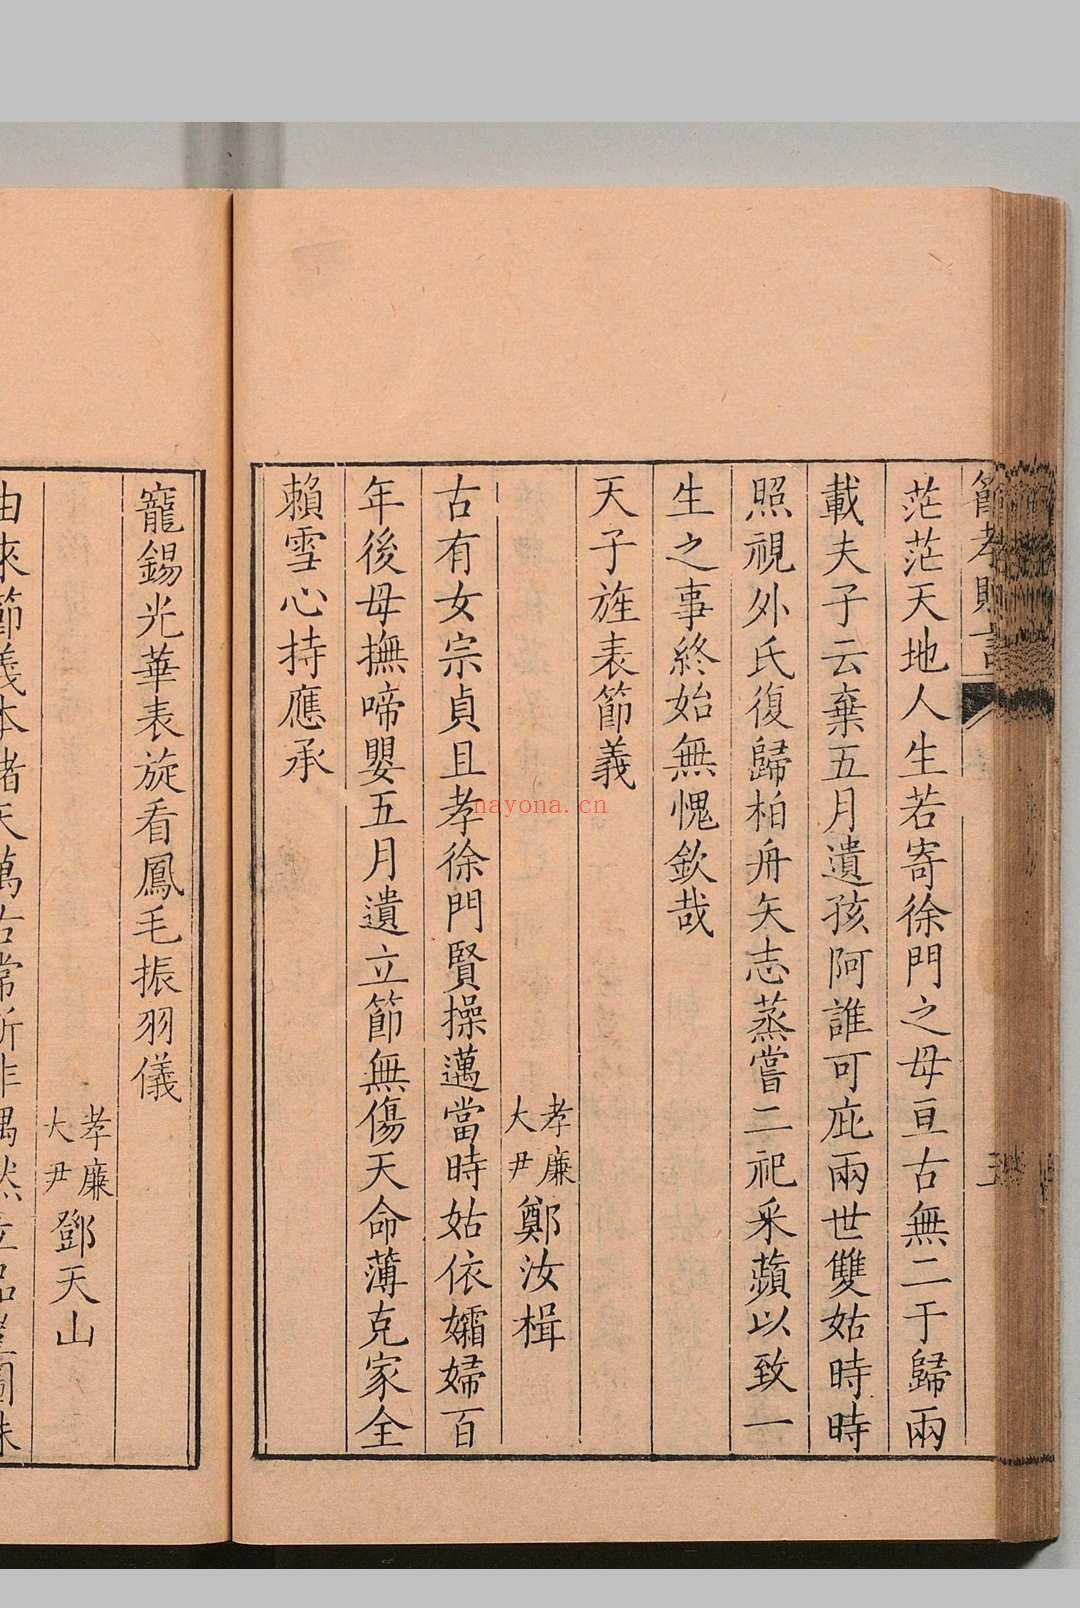 節孝贈言
茫茫天地人生若寄徐門之母亘古無二于歸兩
載夫子云棄五月遺孩阿誰可庇兩世雙姑時時
照視外氏復歸柏舟矢志蒸嘗二祀采蘋以致一
生之事終始無愧欽哉
天子旌表節義
孝廉大尹鄭汝楫
古有女宗貞且孝徐門賢操邁當時姑依孀婦百
年後母撫啼嬰五月遺立節無傷天命薄克家全
賴雪心持應承
寵錫光華表旋看鳳毛振羽儀
孝廉大尹鄧天山
由來節義本諸天萬古常新非偶然
nayona.cn